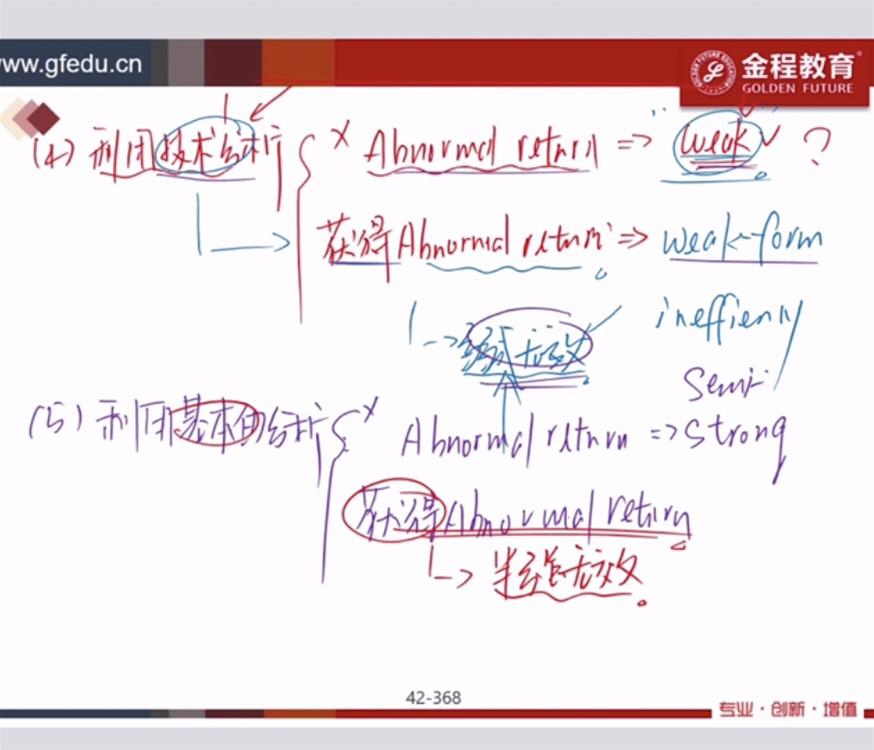 www.gfedu.cn
金程教育
GOLDEN FUTURE
(4) 利用技术分析 { × Abnormal return => "weak" ✓ ?
获得Abnormal return => weak-form
ineffieny
↳ 弱式无效
semi-
(5) 利用基本面分析 { × Abnormal return => strong
获得Abnormal return
↳ 半强无效
42-368
专业·创新·增值